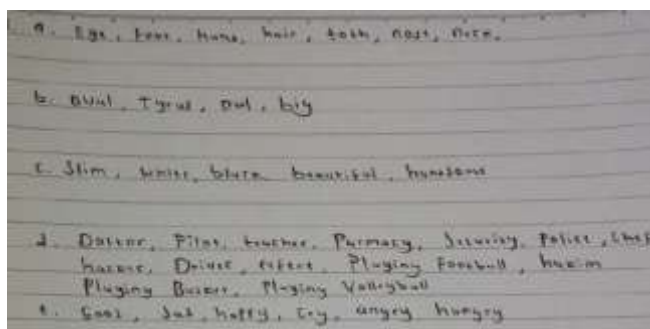 a. Eye, Foot, Hand, hair, tooh, nose, neck.
b. Oval, Tyrus, Owl, big
c. Slim, white, black beautiful, handsome
d. Docter, Pilot, teacher, Parmacy, Security, Police, Chef
hacker, Driver, Playing Football, hakim
Playing Basket, Playing Valleyball
e. Good, Sad, happy, Cry, angry hungry